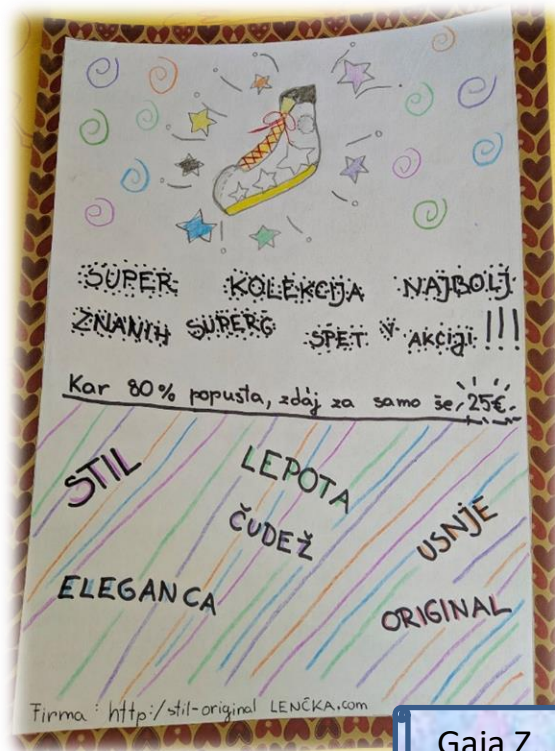 SUPER KOLEKCIJA NAJBOLJ
ZNANIH SUPERG SPET V AKCIJI!!!
Kar 80% popusta, zdaj za samo še 25€.
STIL
LEPOTA
ČUDEŽ
USNJE
ELEGANCA
ORIGINAL
Firma: http:/stil-original LENČKA.com
Gaja Z